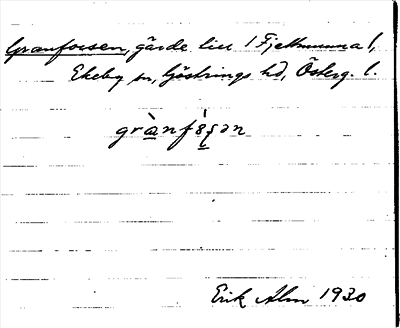 Granforsen, gärde till 1 Fjettmunna l,
Ekeby sn, Göstrings hd, Österg. l.
grànfὸ̣ʂən
Erik Alm 1930